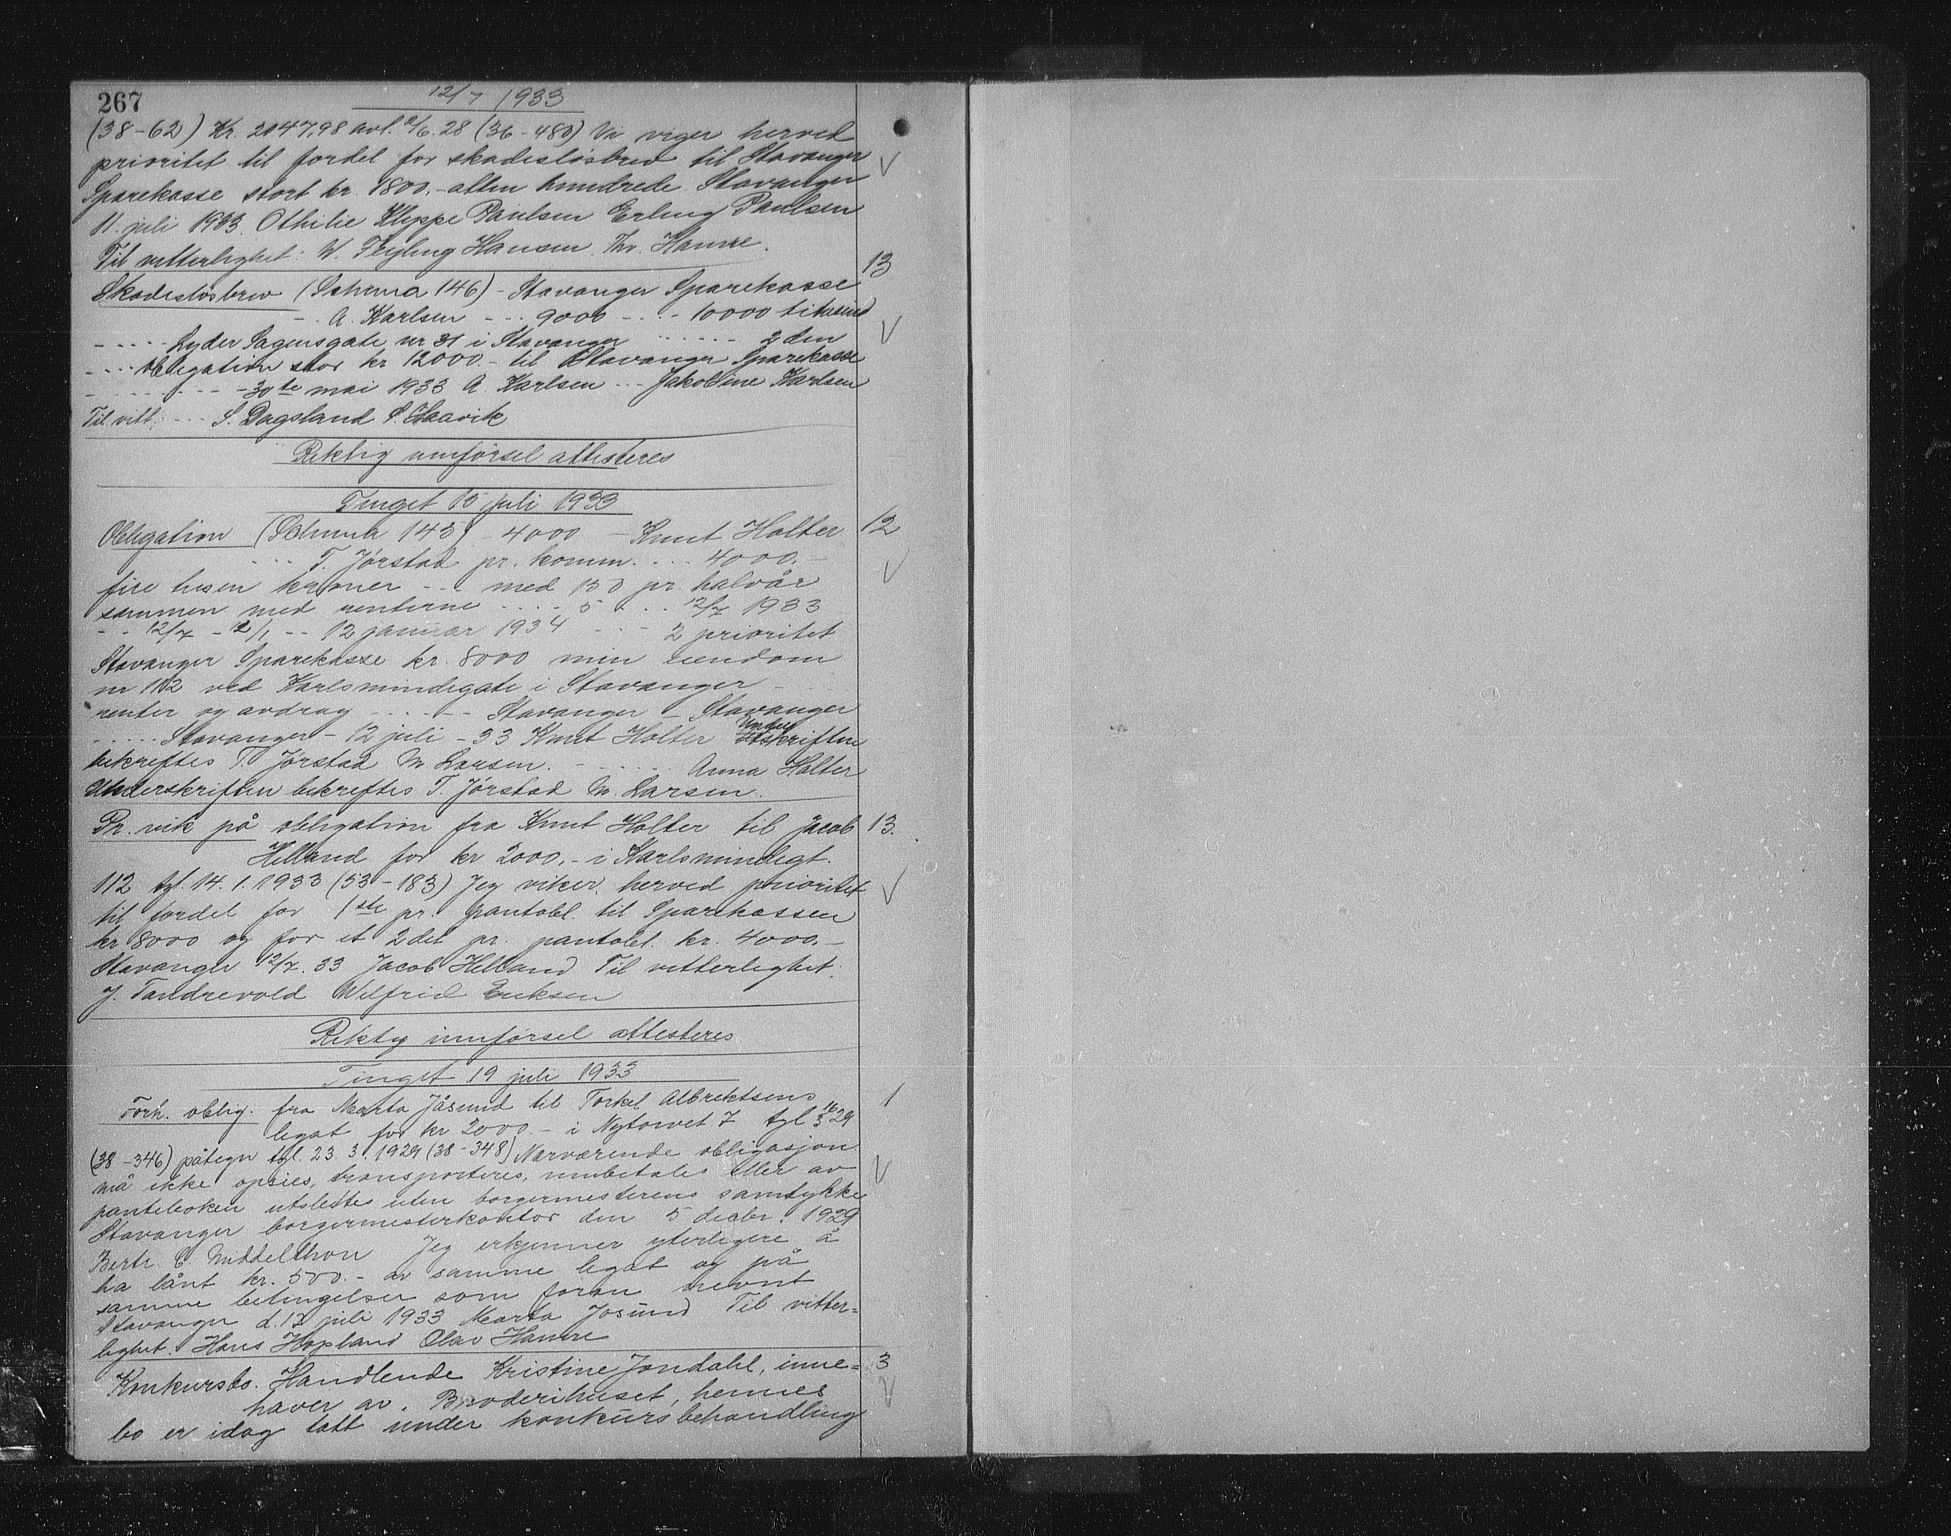 267
12/7 1933
(38-62) Kr. 2047,98 avl. 2/6.28 (36-480) Vi viger herved
prioritet til fordel for skadesløsbrev til Stavanger
Sparekasse stort kr. 1800.- atten hundrede Stavanger
11. juli 1933. Othilie Kleppe Paulsen Erling Paulsen
Til vitterlighet: W. Hansen Thv. Hamre.
Skadesløsbrev (Schema 146) - Stavanger Sparekasse 13
- . A. Karlsen - - . 9000 - . . - 10000 titusind
- - . . - Lyder Sagensgate nr 31 i Stavanger . . . . . - 2 den
- . . . Obligation stor kr 12000.- til Stavanger Sparekasse
- . . - . - - 30te mai 1933 A. Karlsen . . . Jakobine Karlsen
Til vitt: . . . S. Dagsland S. Haavik
Riktig innførsel attesteres
Tinget 15 juli 1933
Obligation (Schema 143) - 4000 - Knut Holter 12
. . . T. Jørstad pr. komm. . . . 4000.-
fire tusen kroner . . . med 150 pr. halvår
sammen med renterne . . . . 5 . . . 12/7 1933
- - 12/7 - 12/1 - - 12 januar 1934 . . . 2 prioritet
Stavanger Sparekasse kr. 8000 min eiendom
nr 112 ved Karlsmindegate i Stavanger -
renter og avdrag . . . . - - Stavanger - Stavanger
. . . . . . Stavanger - 12 juli - 33 Knut Holter Underskriften
bekreftes T. Jørstad M Larsen. - . . . . . . Anna Holter
Underskriften bekreftes T. Jørstad M. Larsen.
Pr. vik på obligation fra Knut Holter til Jacob 13.
Helland for kr 2000.- i Karlsmindegt.
112 tgl. 14.1.1933 (53-183) Jeg viker herved prioritet
til fordel for 1ste pr. pantobl. til Sparekassen
kr 8000 og for et 2det pr. pantobl. kr. 4000.-
Stavanger 12/7.33 Jacob Helland Til vitterlighet:
J. Tandrevold Wilfrid Eriksen
Riktig innførsel attesteres
Tinget 19 juli 1933
Forh. oblig. fra Marta Jåsund til Torkel Albrektsens 1
legat for kr 2000.- i Nytorvet 7 tgl 16/3 29
(38-346) påtegn tgl. 23.3.1929 (38-348) Nærværende obligasjon
må ikke opsies, transporteres, innbetales eller av
panteboken utslettes uten borgermesterens samtykke
Stavanger borgermesterkontor den 5 decbr. 1929
Bertr C Middelthon Jeg erkjenner yterligere å
ha lånt kr. 500.- av samme legat og på
samme betingelser som foran nevnt
Stavanger d. 17 juli 1933 Marta Jåsund Til vitter=
lighet. Hans Hopland Olav Hamre
Konkursbo. Handlende Kristine Jondahl, inne= 3
haver av. Broderihuset, hennes
bo er idag tatt under konkursbehandling